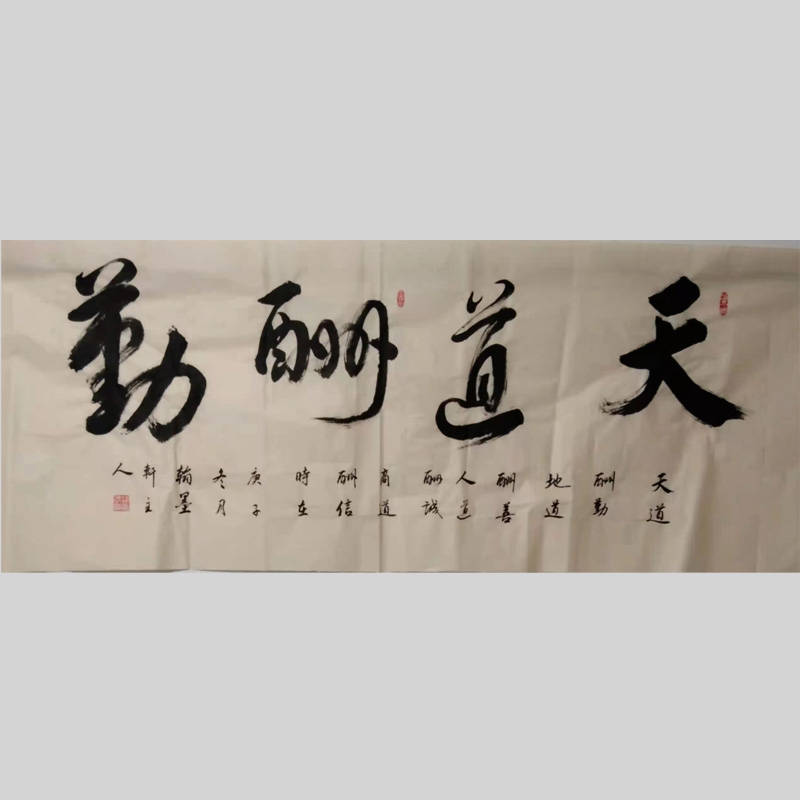 天道酬勤
天道
酬勤
地道
酬善
人道
酬誠
商道
酬信
時在
庚子
冬月
翰墨
軒主
人